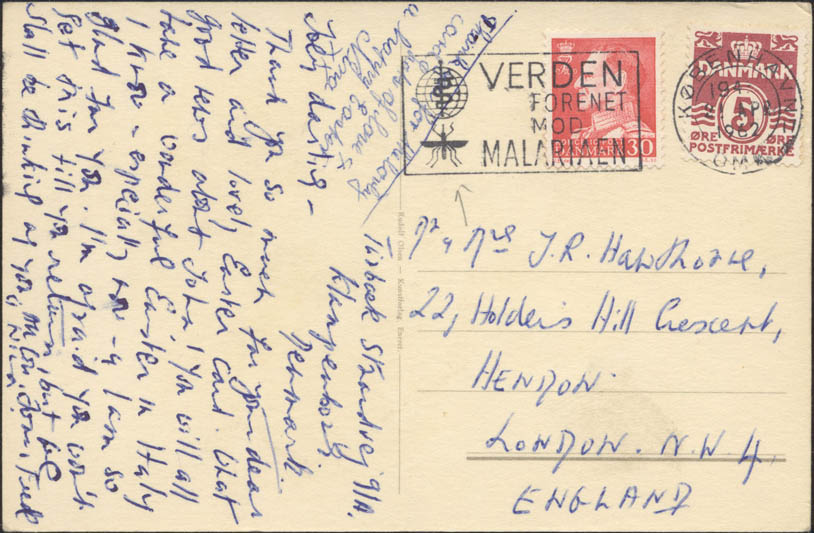 Taarbaek Strandvej 91A.
Klampenborg
Denmark.
Hetty darling –
Thank you so much for your dear
letter and lovely Easter card. What
good news about John! You will all
have a wonderful Easter in Italy
I know – especially now – & I am so
glad for you. I'm afraid you won't
get this till you return, but we
shall be thinking of you,
Thank
card for
a happy Easter &
VERDEN
FORENET
MOD
MALARIAEN
DANMARK 30
KØBENHAVN
1962
OMK
DANMARK
5
ØRE ØRE
POSTFRIMÆRKE
Rudolf Olsen — Kunstforlag Eneret
Mr & Mrs J.R. Hawthorne,
22, Holders Hill Crescent,
HENDON.
LONDON. N.W.4,
ENGLAND